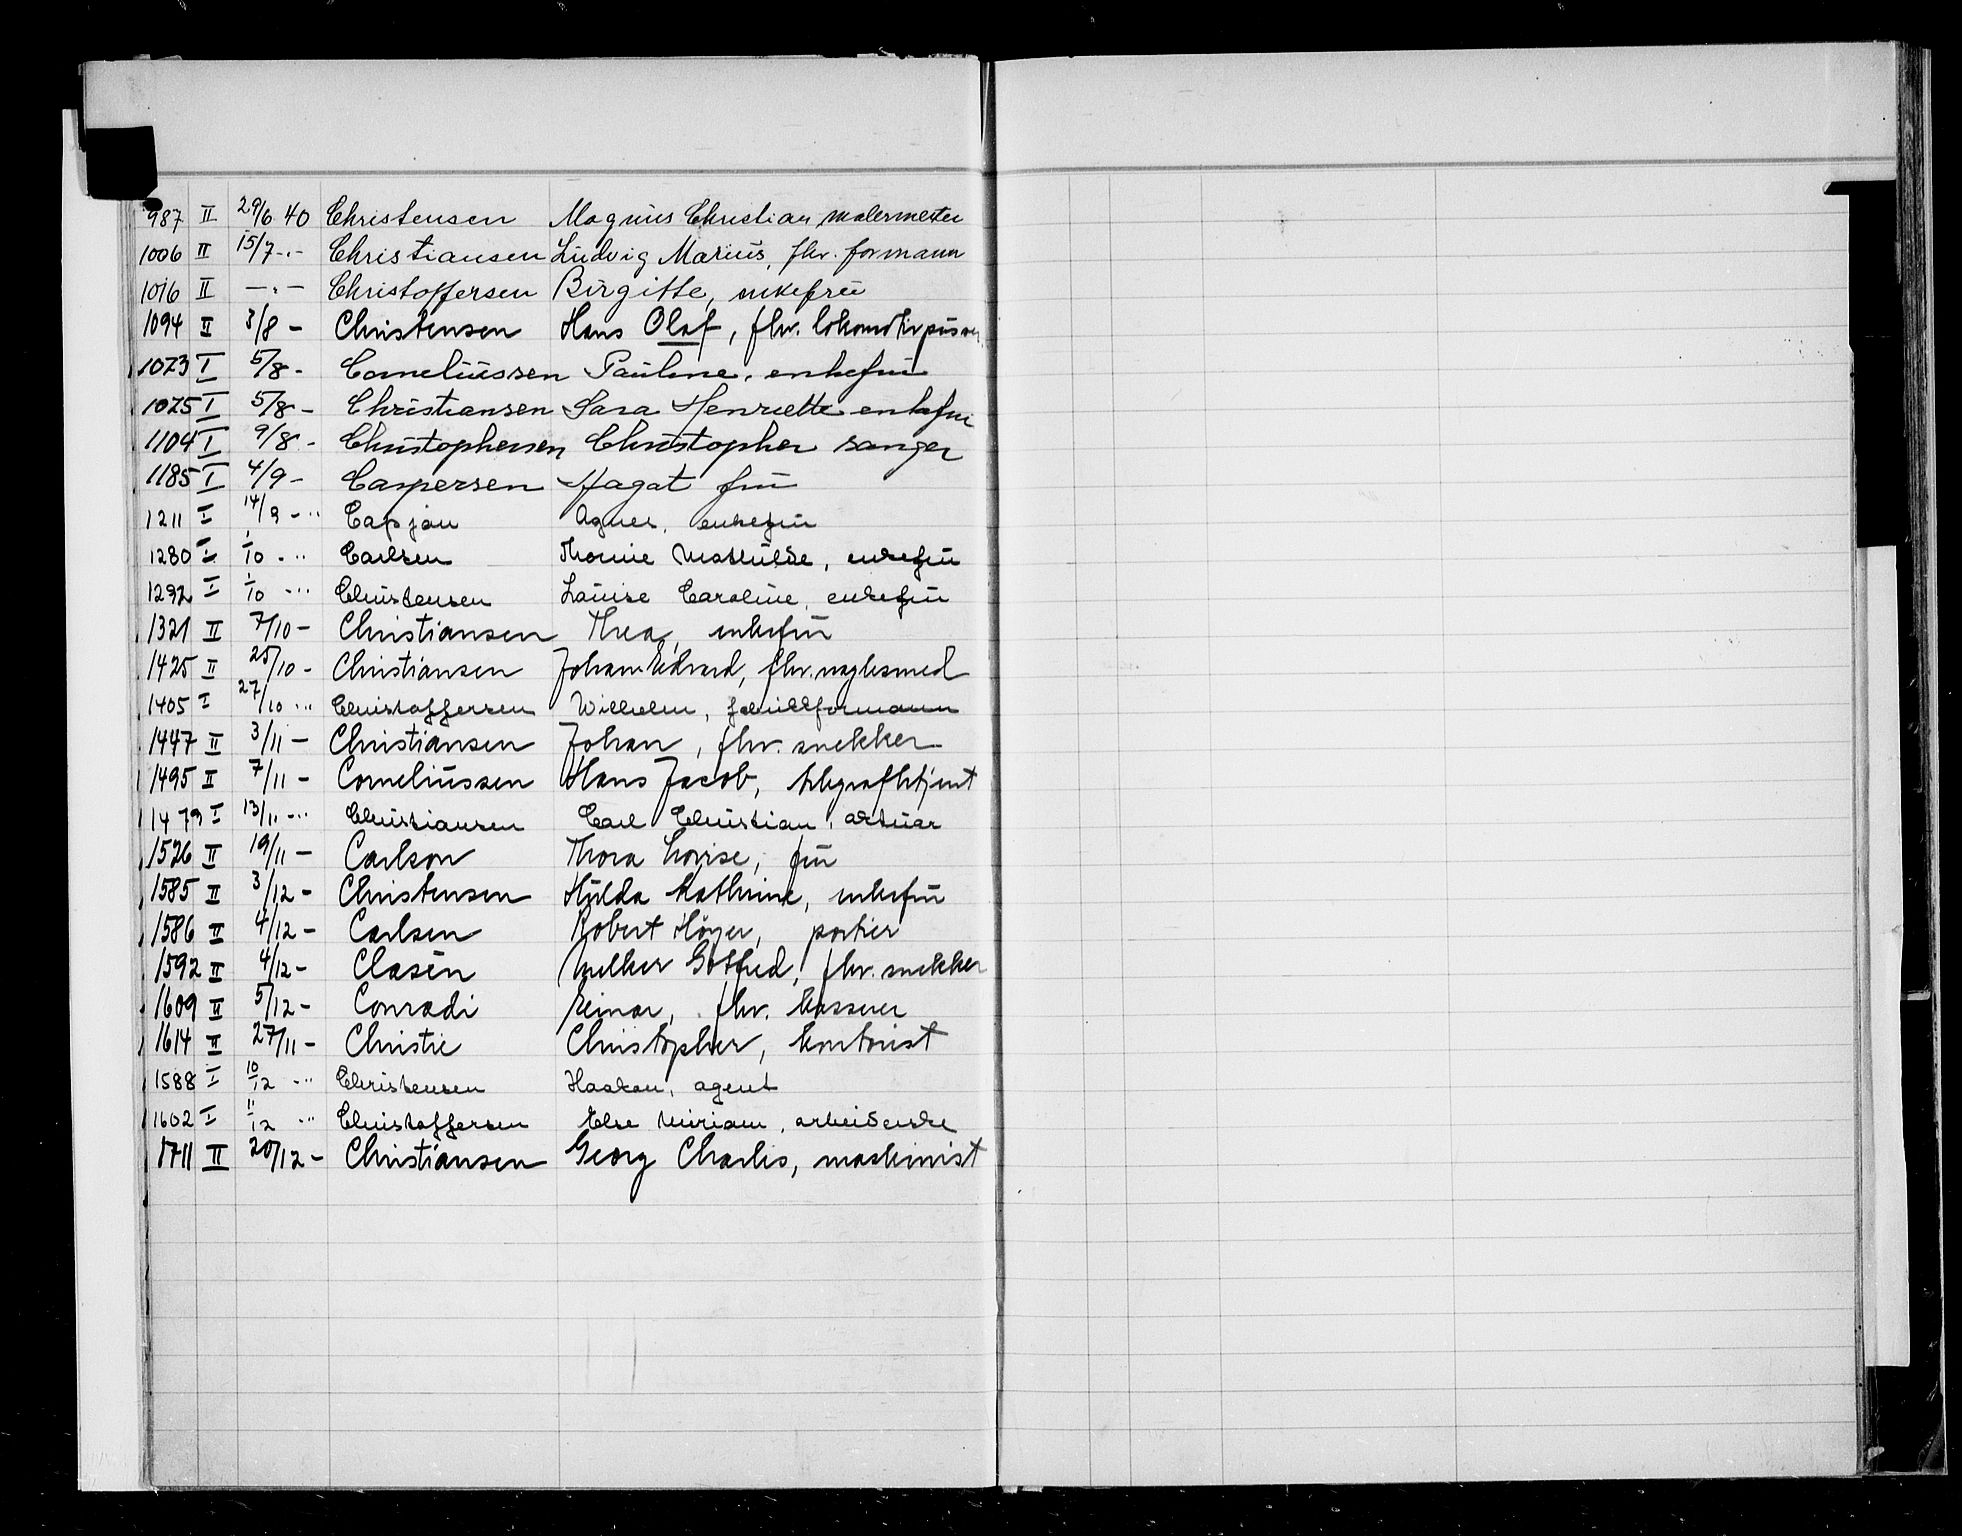 987 II 29/6 40 Christensen Magnus Christian malermester
1006 II 15/7 -"- Christiansen Ludvig Marius, fhv. formann
1016 II -"- Christoffersen Birgitte, enkefru
1094 II 3/8 - Christensen Hans Olaf, fhv. lokomotivpusser
1073 I 5/8 - Corneliussen Pauline, enkefru
1075 I 5/8 - Christiansen Sara Henriette enkefru
1104 I 9/8 - Christophersen Christopher sanger
1185 I 4/9 - Caspersen Hagat fru
1211 I 14/9 -" Capjan Agnes, enkefru
1280 I 1/10 -" Carlsen Thomie Mathilde, enkefru
1292 I 1/10 -" Christensen Louise Caroline, enkefru
1321 II 7/10 - Christiansen Thea, enkefru
1425 II 25/10 - Christiansen Johan Edvard, fhv. naglesmed
1405 I 27/10 -" Christoffersen Wilhelm,
1447 II 3/11 - Christiansen Johan, fhv. snekker
1495 II 7/11 - Corneliussen Hans Jacob, telegrafbetjent
1479 I 13/11 -" Christiansen Carl Christian, aktuar
1526 II 19/11 - Carlson Thora Lovise, fru
1585 II 3/12 - Christensen Hulda Kathrine, enkefru
1586 II 4/12 - Carlsen Robert Höyer, portier
1592 II 4/12 - Clasén Melker Gotfred, fhv. snekker
1609 II 5/12 - Conradi Einar, fhv. kasserer
1614 II 27/11 - Christie Christopher, kontorist
1588 I 10/12 -" Christensen Haakon, agent
1602 I 11/12 " Christoffersen Else Miriam, arbeiderske
1711 II 20/12 - Christiansen Georg Charles, maskinist